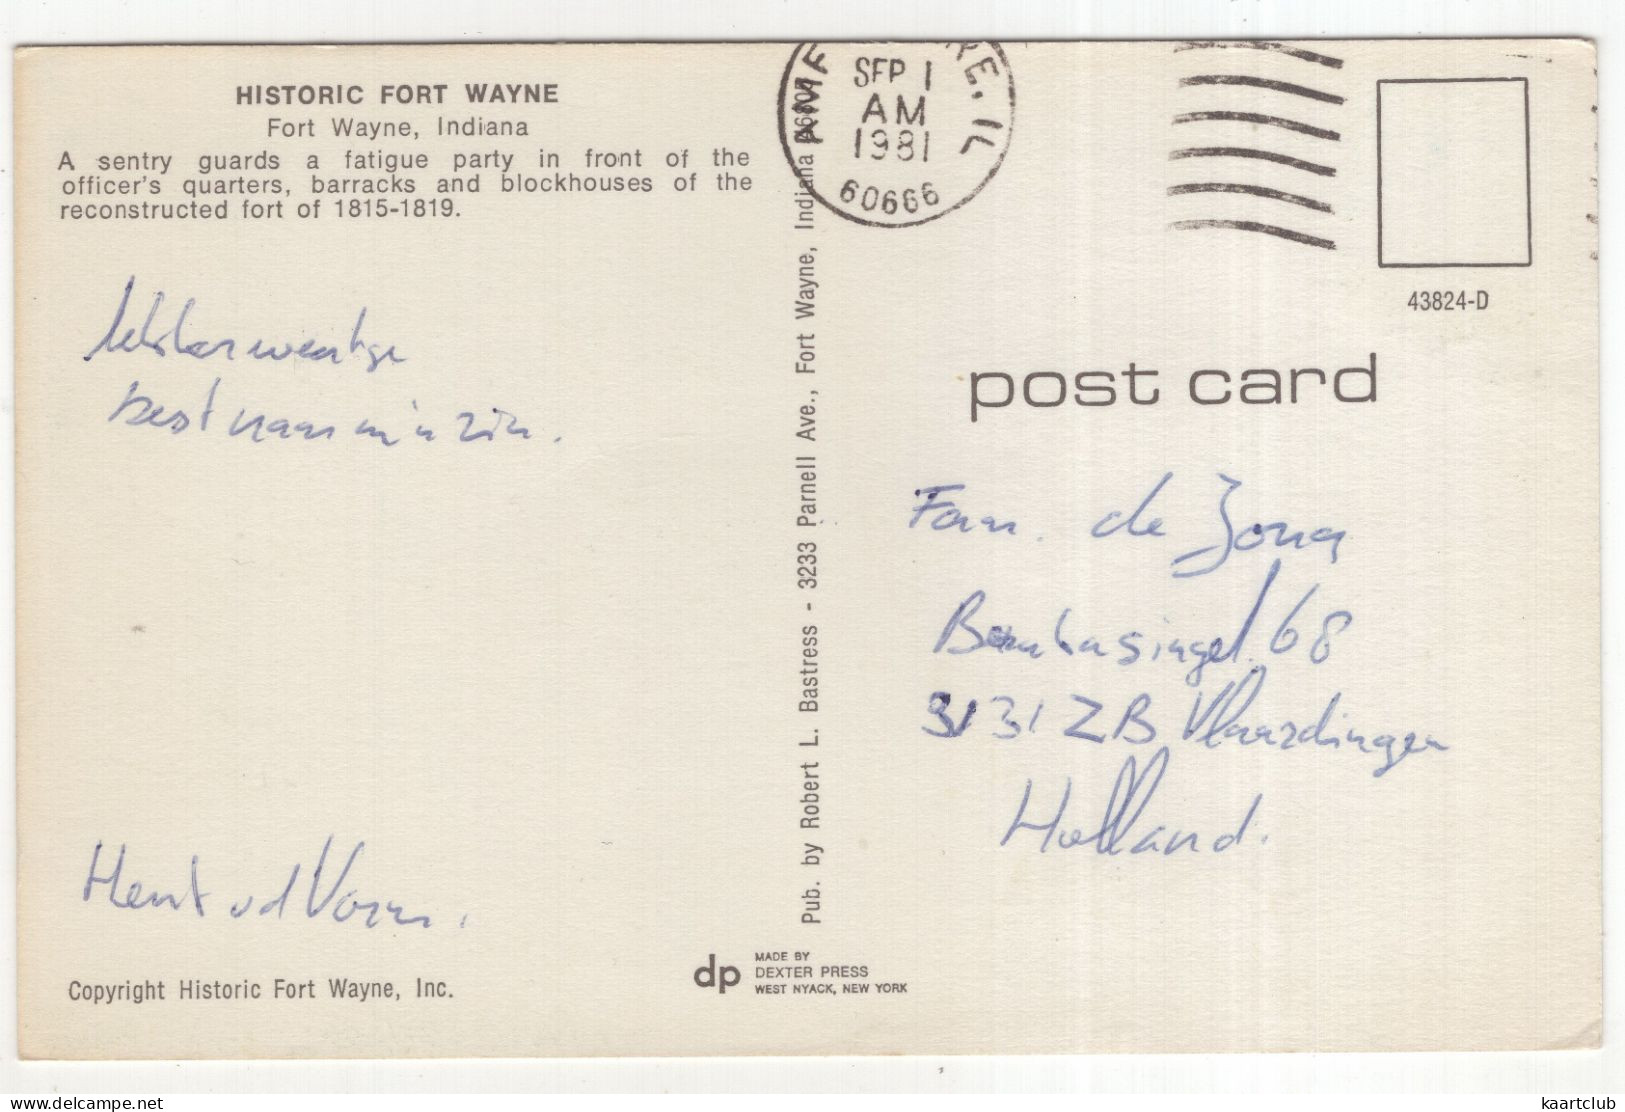 HISTORIC FORT WAYNE
Fort Wayne, Indiana
A sentry guards a fatigue party in front of the
officer's quarters, barracks and blockhouses of the
reconstructed fort of 1815-1819.
best naar m'n zin.
Henk vd Vorm.
Copyright Historic Fort Wayne, Inc.
Pub. by Robert L. Bastress - 3233 Parnell Ave., Fort Wayne, Indiana
dp
MADE BY
DEXTER PRESS
WEST NYACK, NEW YORK
AMF
IL
SEP 1
AM
1981
60666
43824-D
post card
Fam. de Jong
singel 68
3131 ZB Vlaardingen
Holland.
kaartclub